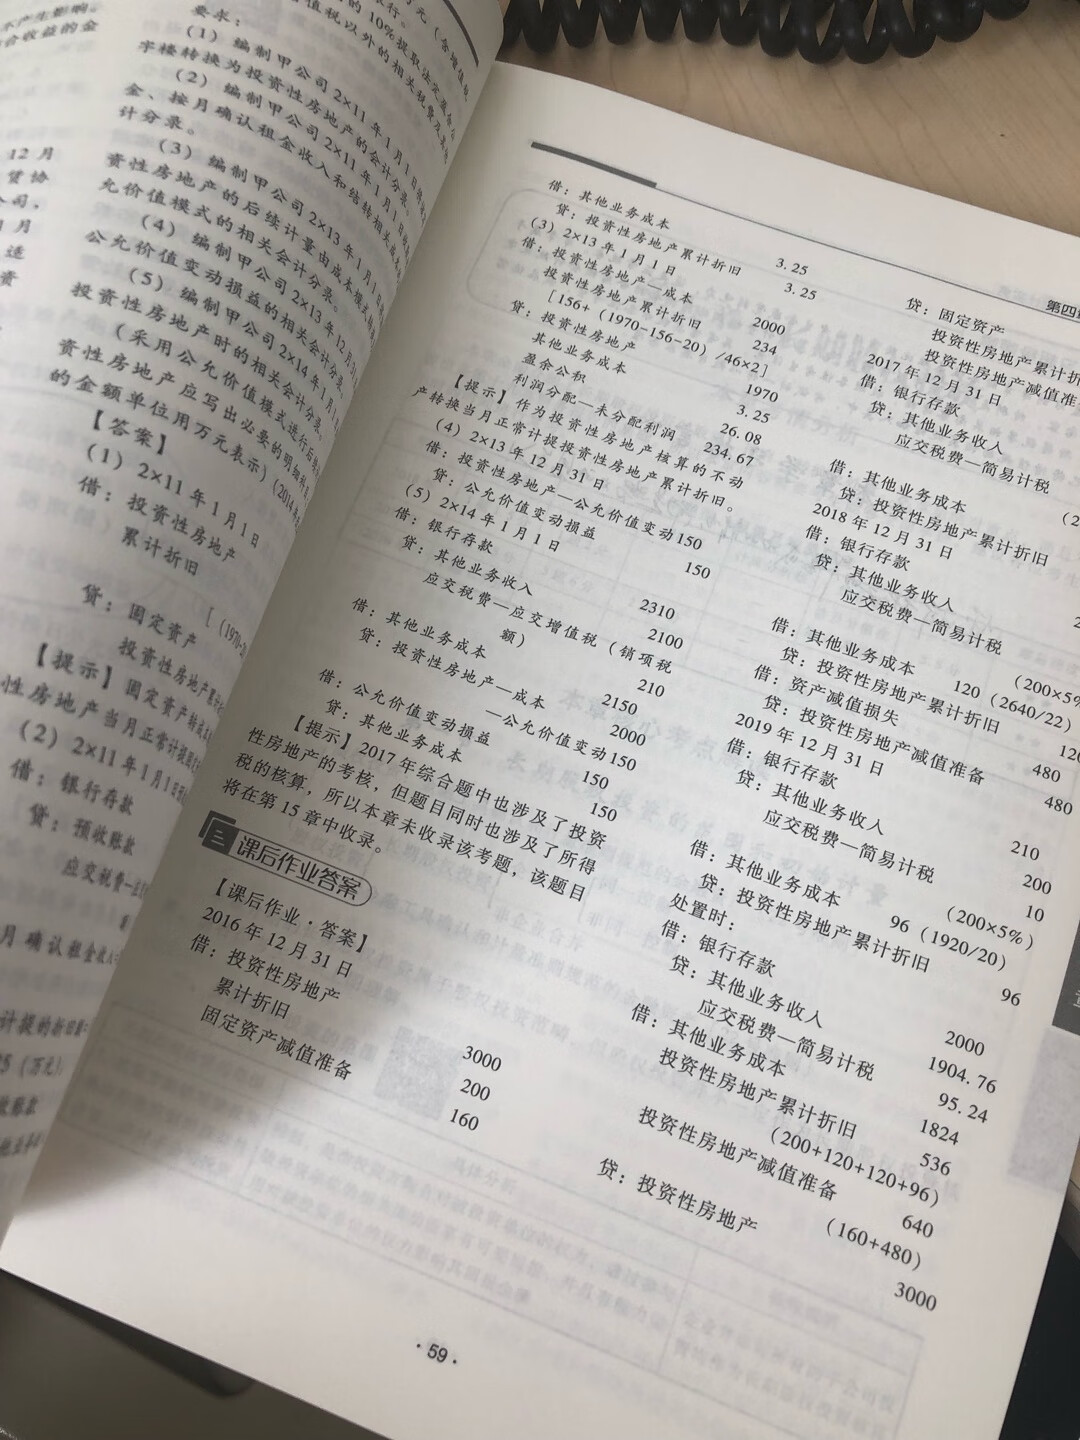 不产生影响。
12月
1月
要求：
（1）编制甲公司2×11年1月1日
字楼转换为投资性房地产的会计分录。
（2）编制甲公司2×11年1月1日
金、按月确认租金收入和结转相关
计分录。
（3）编制甲公司2×13年1月1日
资性房地产的后续计量由成本模式
允价值模式的相关会计分录。
（4）编制甲公司2×13年12月
公允价值变动损益的相关会计分录。
（5）编制甲公司2×14年1月1
投资性房地产时的相关会计分录。
（采用公允价值模式进行后
资性房地产应写出必要的明细
的金额单位用万元表示）（2014
【答案】
（1）2×11年1月1日
借：投资性房地产
累计折旧
贷：固定资产
投资性房地产累计
【提示】固定资产转
性房地产当月正常计提
（2）2×11年1月1日
借：银行存款
贷：预收账款
应交税费—应
月确认租金收
计提的折旧
借：其他业务成本 3.25
贷：投资性房地产累计折旧 3.25
（3）2×13年1月1日
借：投资性房地产—成本 2000
投资性房地产累计折旧 234
［156+（1970-156-20）/46×2］
贷：投资性房地产 1970
其他业务成本 3.25
盈余公积 26.08
利润分配—未分配利润 234.67
【提示】作为投资性房地产核算的不动
产转换当月正常计提投资性房地产累计折旧。
（4）2×13年12月31日
借：投资性房地产—公允价值变动150
贷：公允价值变动损益 150
（5）2×14年1月1日
借：银行存款 2310
贷：其他业务收入 2100
应交税费—应交增值税（销项税
额） 210
借：其他业务成本 2150
贷：投资性房地产—成本 2000
—公允价值变动150
借：公允价值变动损益 150
贷：其他业务成本 150
【提示】2017年综合题中也涉及了投资
性房地产的考核，但题目同时也涉及了所得
税的核算，所以本章未收录该考题，该题目
将在第15章中收录。
三 课后作业答案
【课后作业·答案】
2016年12月31日
借：投资性房地产 3000
累计折旧 200
固定资产减值准备 160
第四
贷：固定资产
投资性房地产累计折
投资性房地产减值准
2017年12月31日
借：银行存款
贷：其他业务收入
应交税费—简易计税
借：其他业务成本
贷：投资性房地产累计折旧
2018年12月31日
借：银行存款
贷：其他业务收入
应交税费—简易计税
（200×5%
借：其他业务成本 120（2640/22）
贷：投资性房地产累计折旧 120
借：资产减值损失 480
贷：投资性房地产减值准备 480
2019年12月31日
借：银行存款 210
贷：其他业务收入 200
应交税费—简易计税 10
（200×5%）
借：其他业务成本 96（1920/20）
贷：投资性房地产累计折旧 96
处置时：
借：银行存款 2000
贷：其他业务收入 1904.76
应交税费—简易计税 95.24
借：其他业务成本 1824
投资性房地产累计折旧 536
（200+120+120+96）
投资性房地产减值准备 640
（160+480）
贷：投资性房地产 3000
·59·